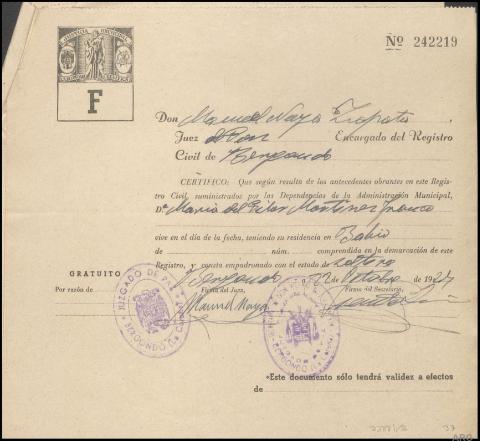 Nº 242219
F
Don Manuel Naya Zapata
Juez de Paz Encargado del Registro
Civil de Bergondo
CERTIFICO: Que según resulta de los antecedentes obrantes en este Regis-
tro Civil, suministrados por las Dependencias de la Administración Municipal,
D.ª María del Pilar Martínez Franco
vive en el día de la fecha, teniendo su residencia en Babío
de núm. comprendida en la demarcación de este
Registro, y consta empadronado con el estado de soltera
GRATUITO
Bergondo 22 de Octubre de 19
Por razón de Firma del Juez, Firma del Secretario,
Manuel Naya
JUZGADO DE
BERGONDO
BERGONDO
«Este documento sólo tendrá validez a efectos
de
37